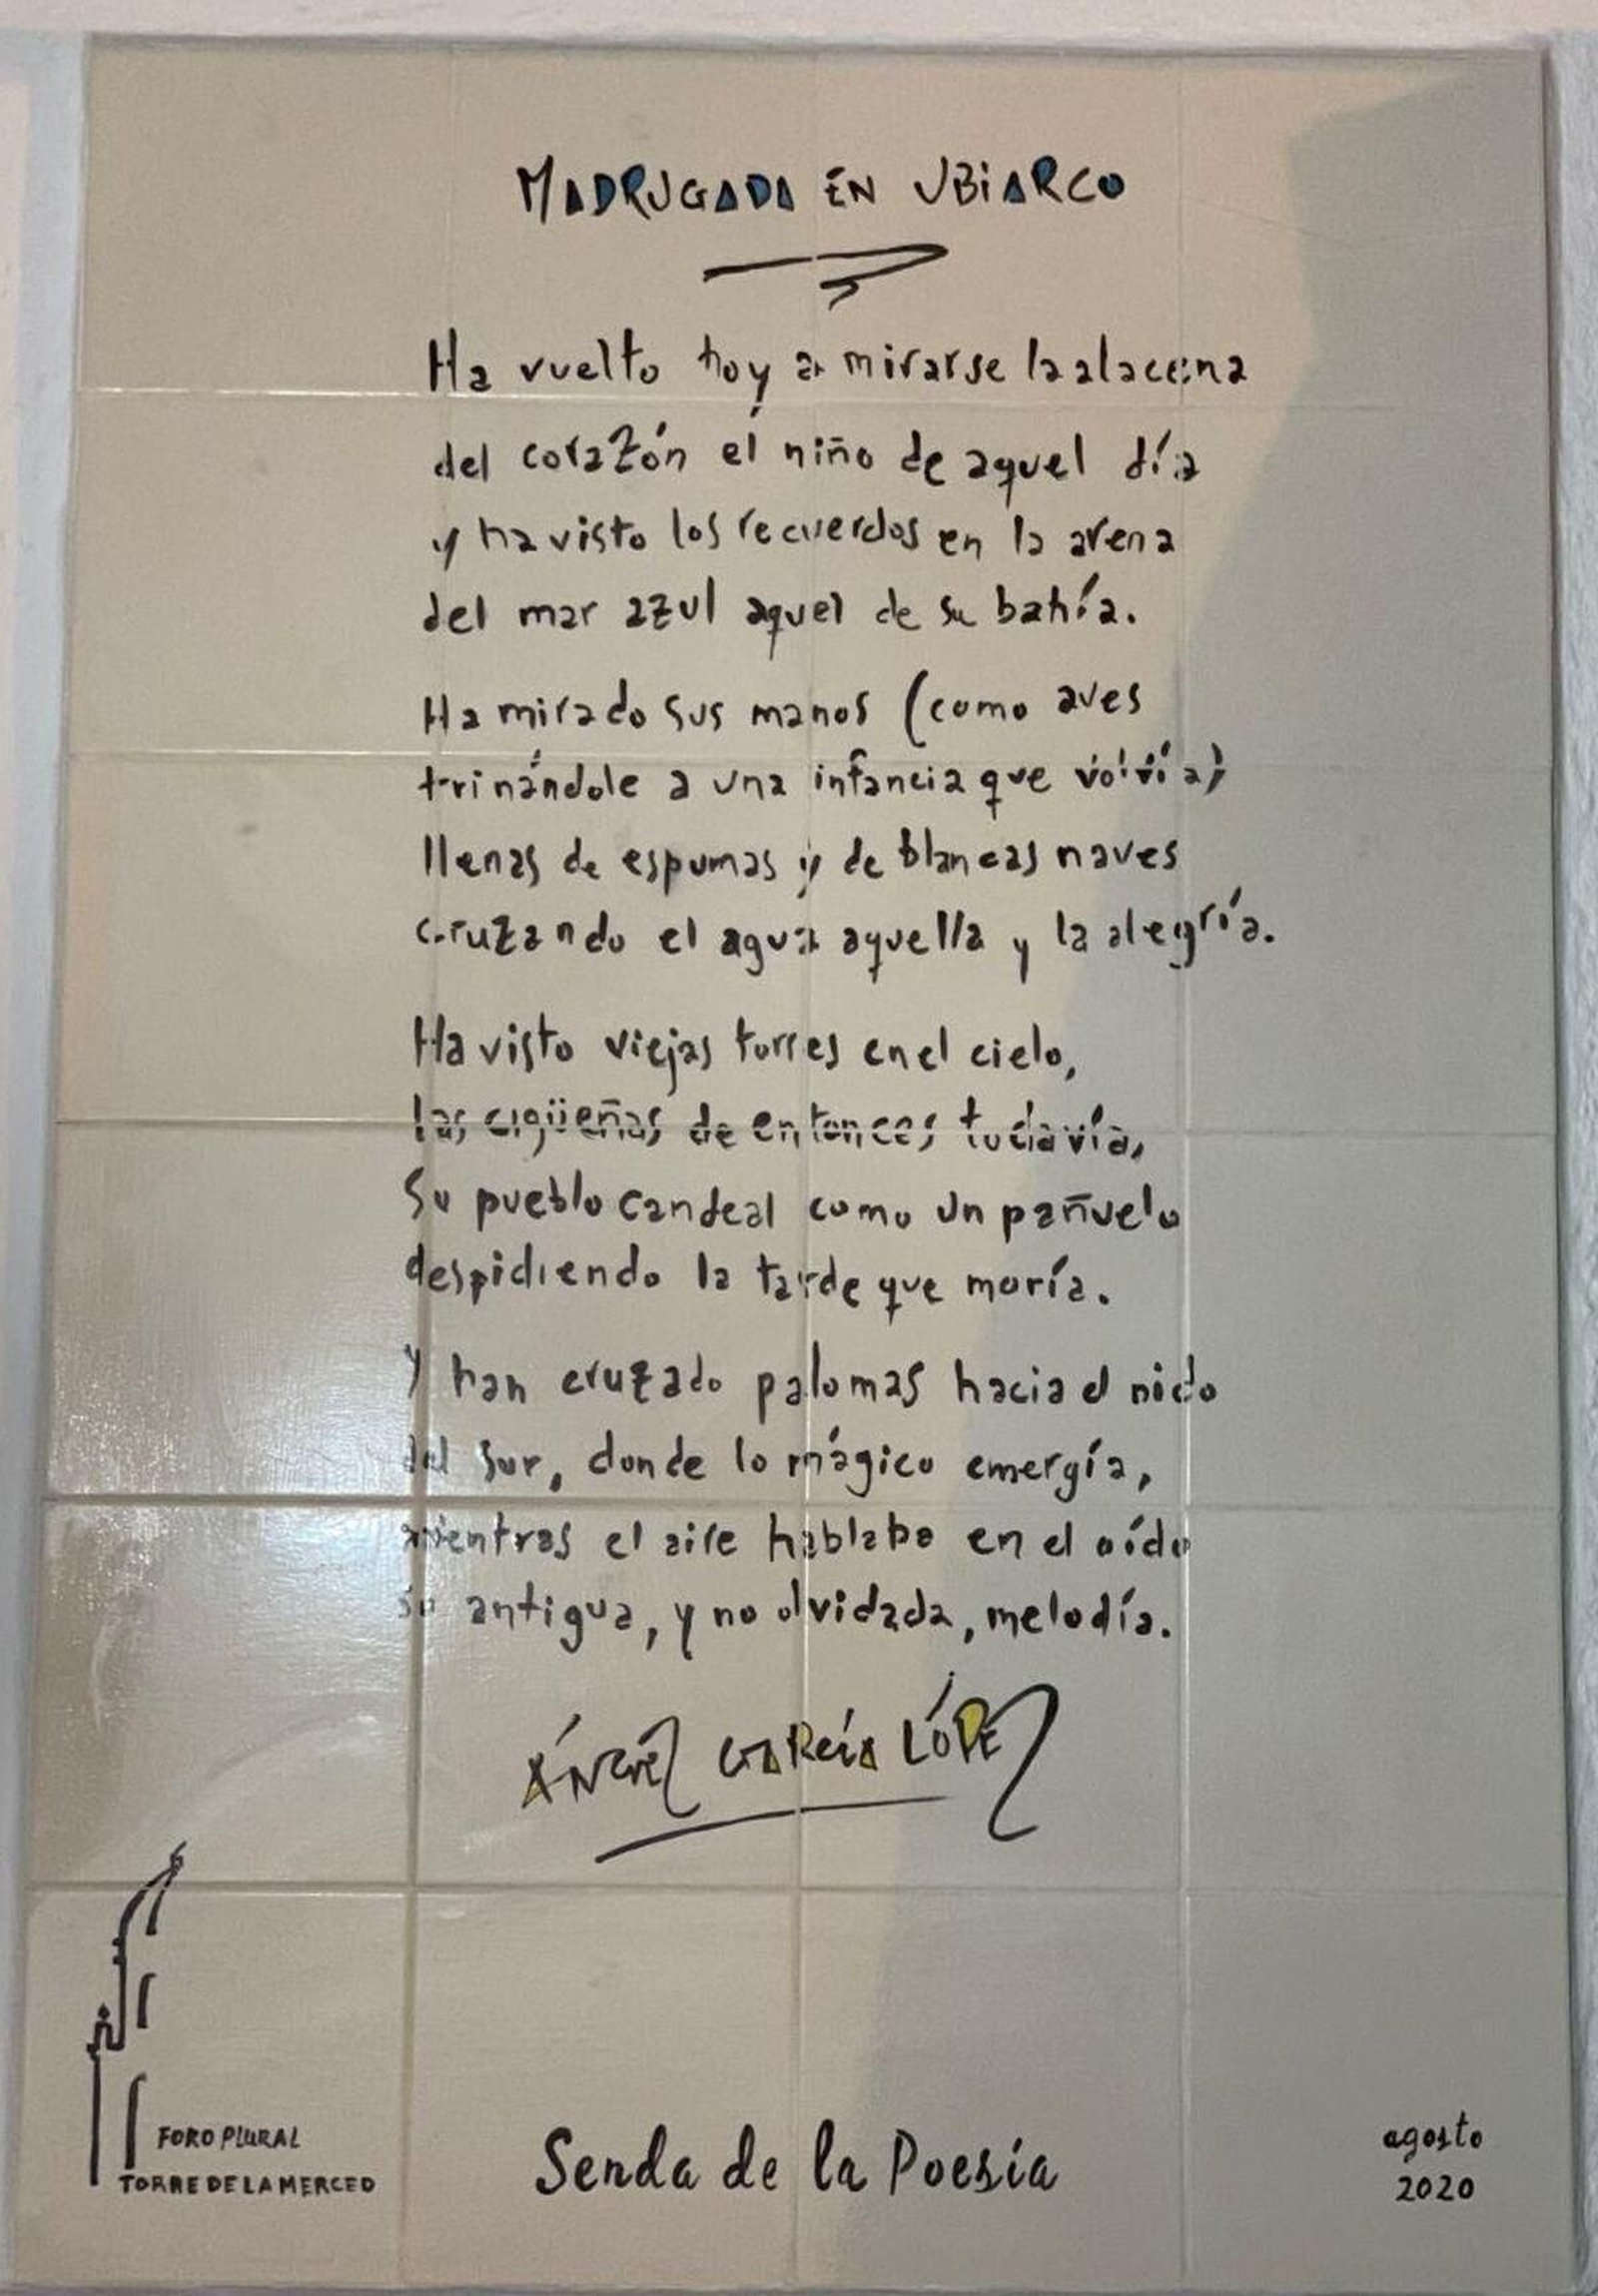 MADRUGADA EN UBIARCO
Ha vuelto hoy a mirarse la alacena
del corazón el niño de aquel día
y ha visto los recuerdos en la arena
del mar azul aquel de su bahía.
Ha mirado sus manos (como aves
trinándole a una infancia que volvía)
llenas de espumas y de blancas naves
cruzando el agua aquella y la alegría.
Ha visto viejas torres en el cielo,
las cigüeñas de entonces todavía,
Su pueblo candeal como un pañuelo
despidiendo la tarde que moría.
Y han cruzado palomas hacia el nido
del Sur, donde lo mágico emergía,
mientras el aire hablaba en el oído
su antigua, y no olvidada, melodía.
ÁNGEL GARCÍA LÓPEZ
FORO PLURAL
TORRE DE LA MERCED
Senda de la Poesía
agosto
2020